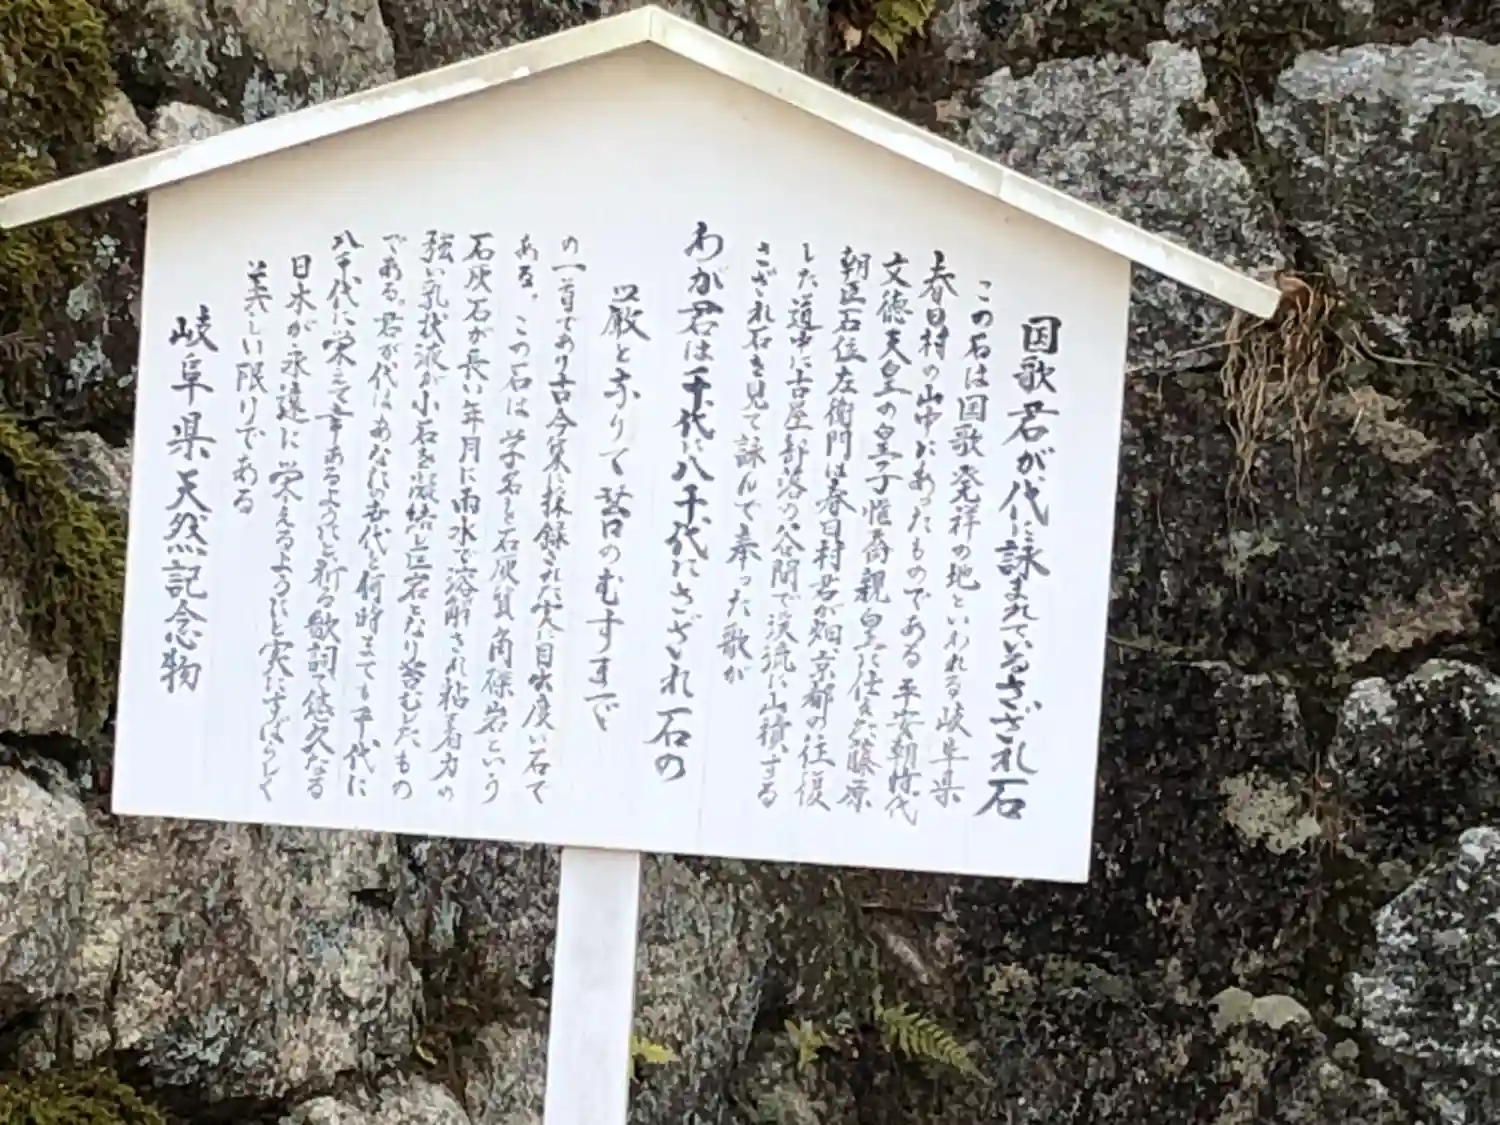 国歌君が代に詠まれているさざれ石
この石は国歌発祥の地といわれる岐阜県
春日村の山中にあったものである 平安朝時代
文徳天皇の皇子惟喬親皇に仕えた藤原
朝臣石位左衛門は春日村君が畑、京都の往復
した道中に古屋部落の谷間で渓流に山積する
さざれ石を見て詠んで奉った歌が
わが君は千代に八千代にさざれ石の
巌となりて苔のむすまで
の一首であり古今集に採録された実に目出度い石で
ある。この石は学名を石灰質角礫岩という
石灰石が長い年月に雨水で溶解され粘着力の
強い乳状液が小石を凝結し巨岩となり苔むしたもの
である。君が代はあなたの古代と何時までも千代に
八千代に栄えて幸あるようにと祈る歌詞で悠久なる
日本が永遠に栄えるようにと実にすばらしく
美しい限りである
岐阜県天然記念物